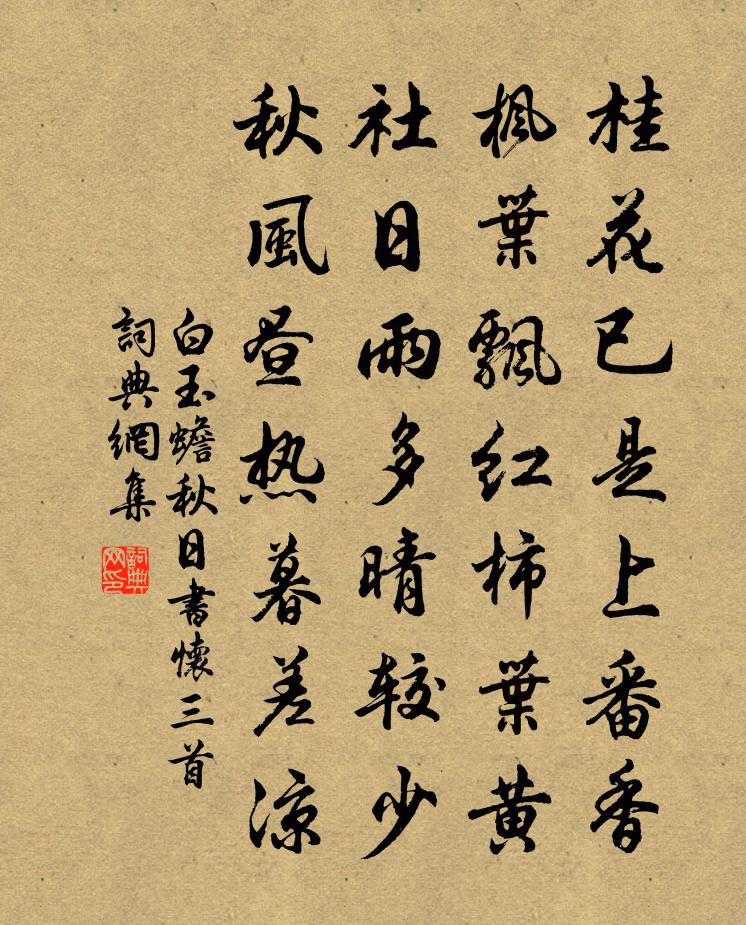 桂花已是上番香
枫葉飄红柿葉黄
社日雨多晴较少
秋風昼热暮差凉
白玉蟾秋日書懷三首
詞典網集
詞典网印